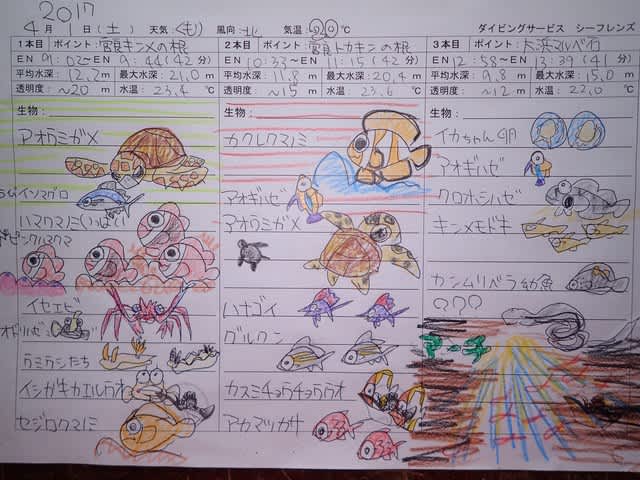 2017
4月1日(土) 天気 くもり 風向:北 気温 20℃ ダイビングサービス シーフレンズ
1本目 ポイント:宮良キンメの根
EN 9:02~EN 9:44(42分)
平均水深:12.2m 最大水深:21.0m
透明度:~20m 水温:23.4℃
生物:
アオウミガメ
イソマグロ
ハマクマノミいっぱい
イセエビ
オドリハゼ
ウミウシたち
イシガキカエルウオ
セジロクマノミ
2本目 ポイント:宮良トカキンの根
EN 10:33~EN 11:15(42分)
平均水深:11.8m 最大水深:20.4m
透明度:~15m 水温:23.6℃
生物:
カクレクマノミ
アオギハゼ
アオウミガメ
ハナゴイ
グルクン
カスミチョウチョウウオ
アカマツカサ
3本目 ポイント:大浜マルベ石
EN 12:58~EN 13:39(41分)
平均水深:9.8m 最大水深:15.0m
透明度:~12m 水温:22.0℃
生物:
イカちゃん卵
アオギハゼ
クロホシハゼ
キンメモドキ
カンムリベラ幼魚
???
アーチ